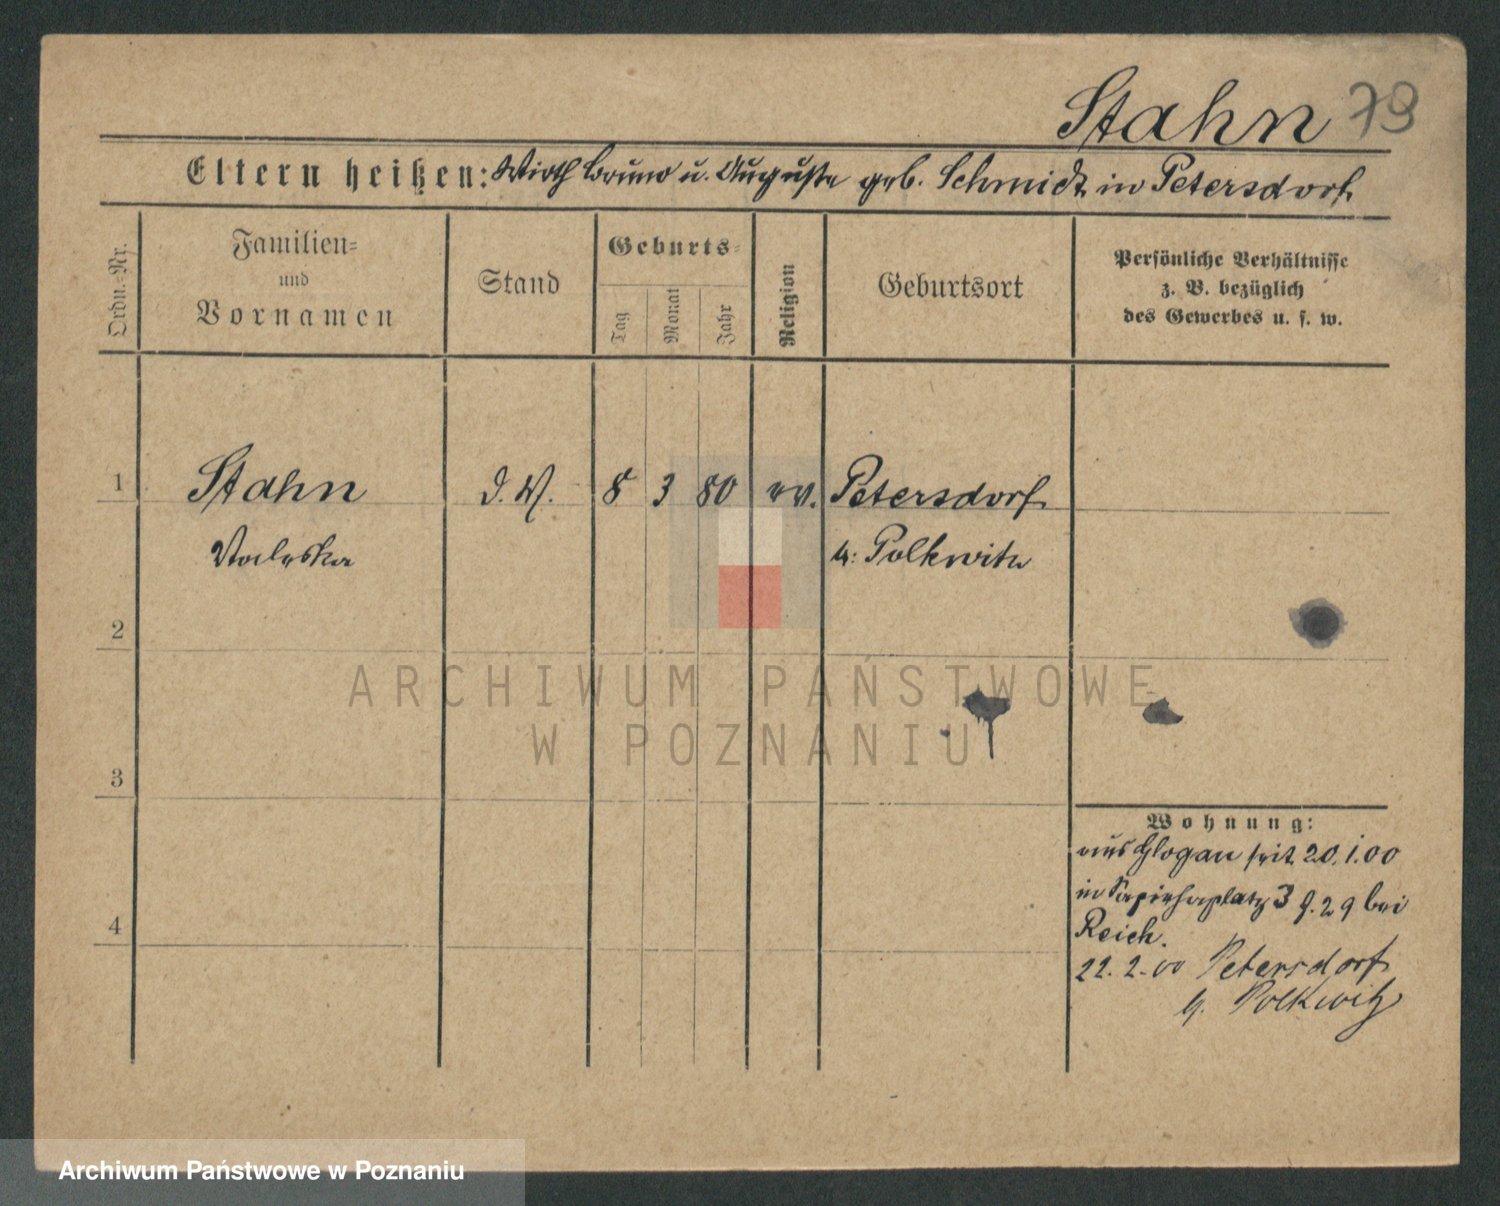 Stahn 79
Eltern heißen: Wirth Bruno u. Auguste geb. Schmidt in Petersdorf
Ordn.-Nr.
Familien-
und
Vornamen
Stand
Geburts-
Tag
Monat
Jahr
Religion
Geburtsort
Persönliche Verhältnisse
z. B. bezüglich
des Gewerbes u. s. w.
1 Stahn D. M. 8 3 80 ev. Petersdorf
Valeska b: Polkwitz
2
ARCHIWUM PAŃSTWOWE
W POZNANIU
3
Wohnung:
aus Glogau seit 20.1.00
in Sapiehaplatz 3 g. 29 bei
4
Reich.
22.2.00 Petersdorf
b. Polkwitz
Archiwum Państwowe w Poznaniu